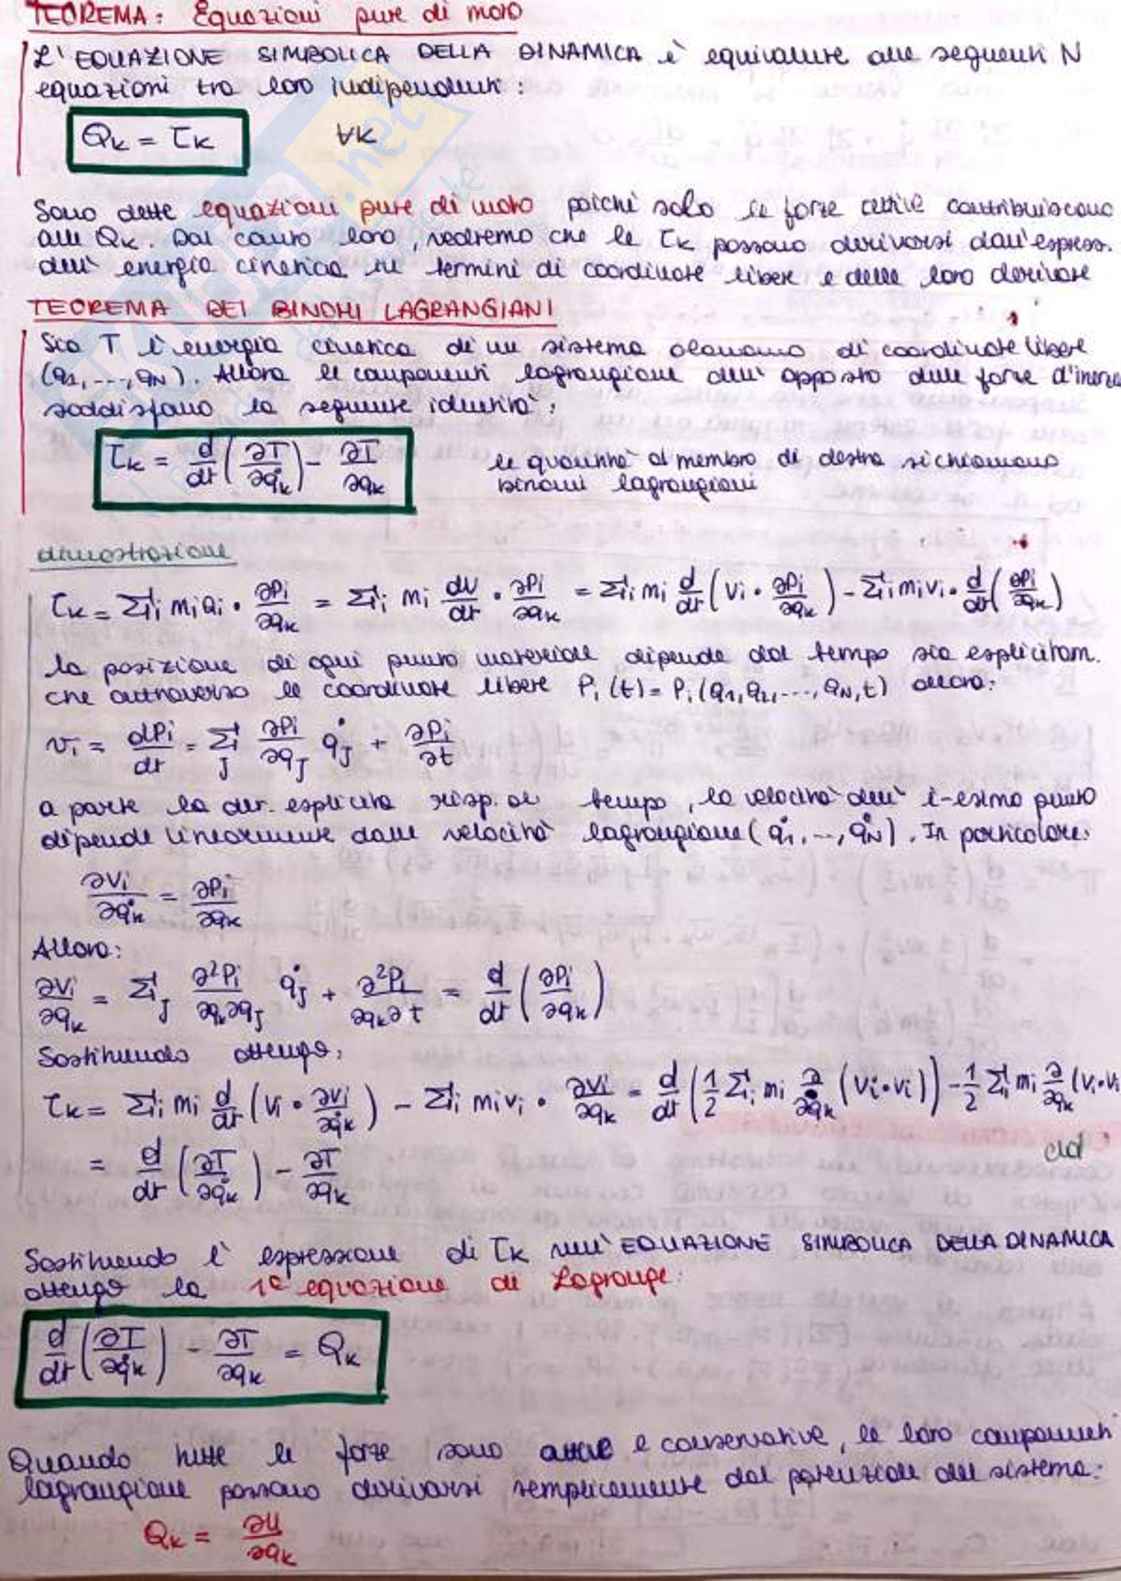 TEOREMA: Equazioni pure di moto
L'EQUAZIONE SIMBOLICA DELLA DINAMICA è equivalente alle seguenti N
equazioni tra loro indipendenti:
Qk = τk ∀k
Sono dette equazioni pure di moto poiché solo le forze attive contribuiscono
alle Qk. Dal canto loro, vedremo che le τk possono derivarsi dall'espress.
dell'energia cinetica in termini di coordinate libere e delle loro derivate
TEOREMA DEI BINOMI LAGRANGIANI
Sia T l'energia cinetica di un sistema olonomo di coordinate libere
(q1,...,qN). Allora le componenti lagrangiane dell'opposto delle forze d'inerzia
soddisfano la seguente identità:
τk = d/dt (∂T/∂q̇k) − ∂T/∂qk le quantità al membro di destra si chiamano
binomi lagrangiani
dimostrazione
τk = Σi mi ai · ∂Pi/∂qk = Σi mi dv/dt · ∂Pi/∂qk = Σi mi d/dt (vi · ∂Pi/∂qk) − Σi mi vi · d/dt (∂Pi/∂qk)
la posizione di ogni punto materiale dipende dal tempo sia esplicitam.
che attraverso le coordinate libere Pi(t) = Pi(q1,q2,...,qN,t) allora:
vi = dPi/dt = Σj ∂Pi/∂qj q̇j + ∂Pi/∂t
a parte la der. esplicita risp. al tempo, la velocità dell'i-esimo punto
dipende linearmente dalle velocità lagrangiane (q̇1,...,q̇N). In particolare:
∂vi/∂q̇k = ∂Pi/∂qk
Allora:
∂vi/∂qk = Σj ∂²Pi/∂qk∂qj q̇j + ∂²Pi/∂qk∂t = d/dt (∂Pi/∂qk)
Sostituendo ottengo:
τk = Σi mi d/dt (vi · ∂vi/∂q̇k) − Σi mi vi · ∂vi/∂qk = d/dt (1/2 Σi mi ∂/∂q̇k (vi·vi)) − 1/2 Σi mi ∂/∂qk (vi·vi
= d/dt (∂T/∂q̇k) − ∂T/∂qk cvd
Sostituendo l'espressione di τk nell'EQUAZIONE SIMBOLICA DELLA DINAMICA
ottengo la 1ª equazione di Lagrange:
d/dt (∂T/∂q̇k) − ∂T/∂qk = Qk
Quando tutte le forze sono attive e conservative, le loro componenti
lagrangiane possono derivarsi semplicemente dal potenziale del sistema:
Qk = ∂U/∂qk